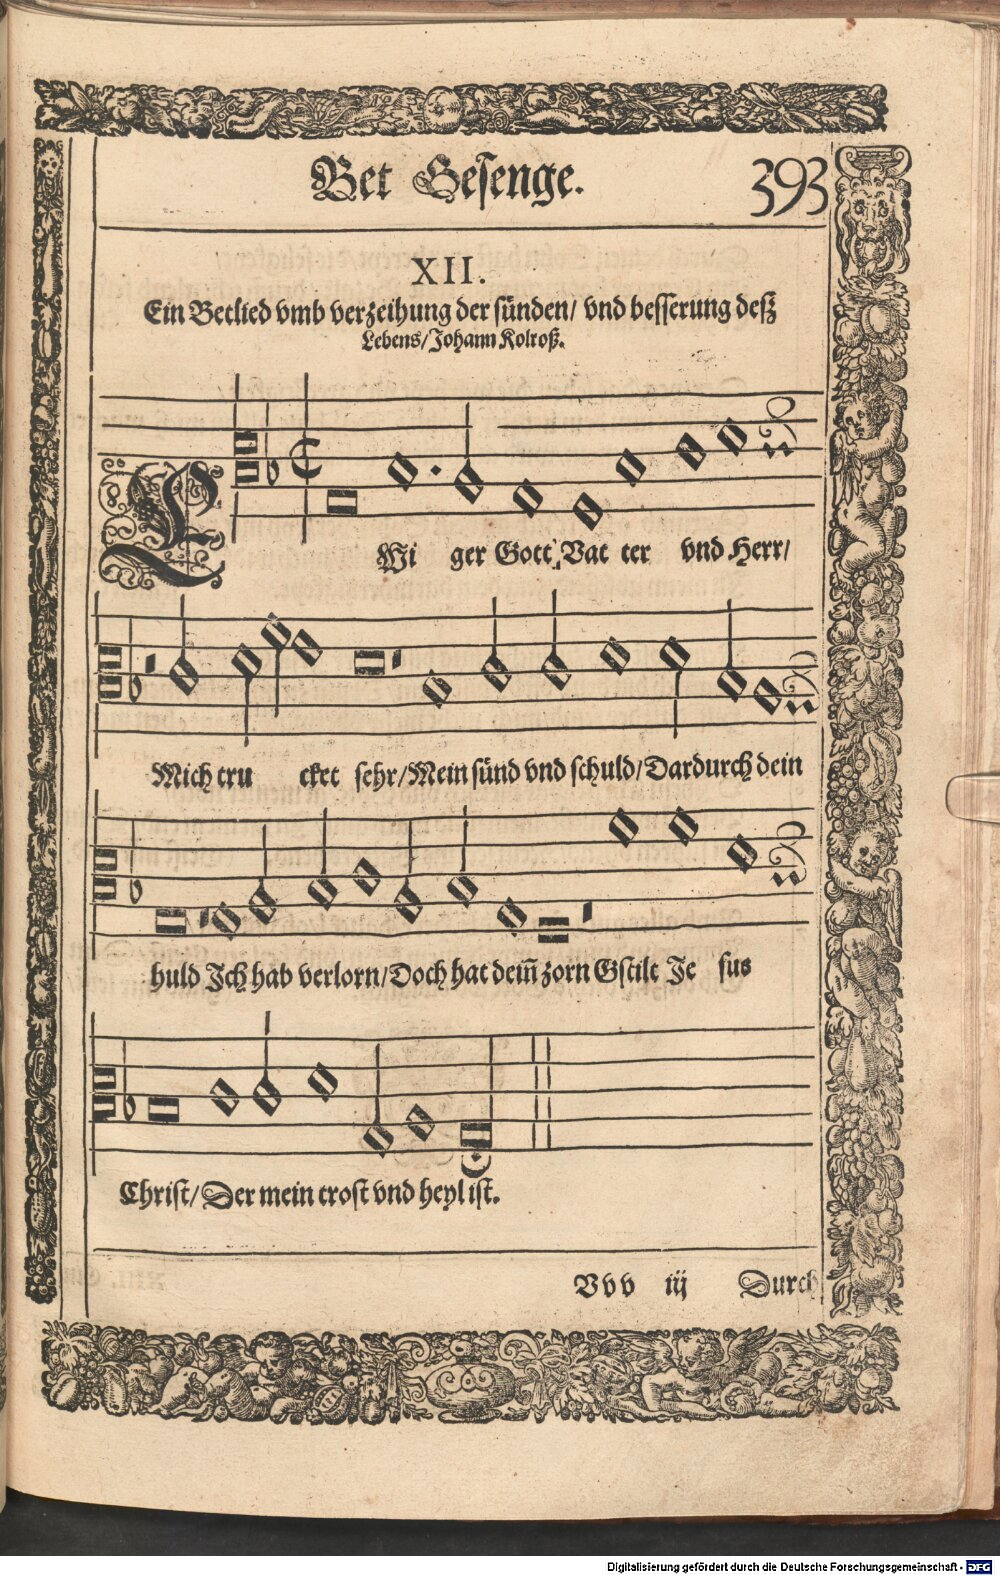 Bet Gesenge. 393
XII.
Ein Betlied vmb verzeihung der sünden/ vnd besserung desz
Lebens/ Johann Kolroß.
EWi ger Gott, Vat ter vnd Herr/
Mich tru cket sehr/ Mein sünd vnd schuld/ Dardurch dein
huld Jch hab verlorn/ Doch hat deiñ zorn Gstilt Je sus
Christ/ Der mein trost vnd heyl ist.
Vvv iij Durch
Digitalisierung gefördert durch die Deutsche Forschungsgemeinschaft - DFG